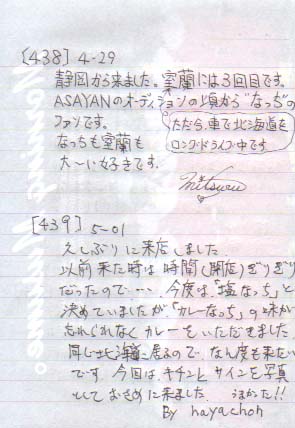 [438] 4-29
静岡から来ました。室蘭には3回目です。
ASAYANのオーディションの頃から"なっち"の
ファンです。
なっちも室蘭も
大〜い好きです。
ただ今、車で北海道を
ロングドライブ中です
Mitsuru
[439] 5-01
久しぶりに来店しました
以前来た時は時間(閉店)ぎりぎり
だったので…今度は「塩なっち」と
決めていましたが「カレーなっち」の味が
忘れられなくカレーをいただきました
同じ北海道に居るので、なん度も来たい
です 今回は、キチンとサインを写真
としておさめに来ました。 うまかた!!
By hayachon